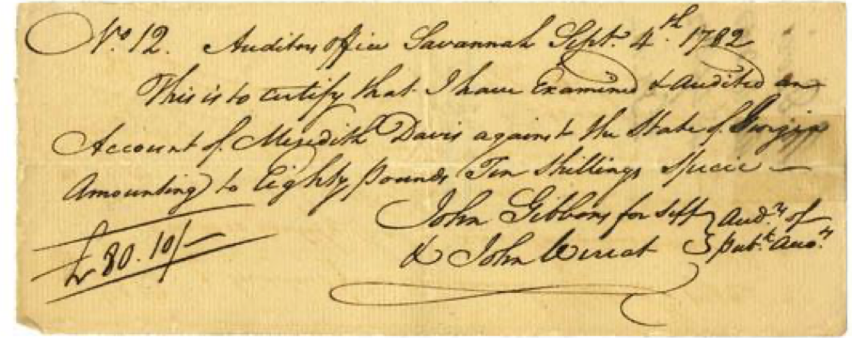 No 12. Auditors office Savannah Sept. 4th. 1782
This is to certify that I have Examined & audited an
Account of Meredith Davis against the State of Georgia
Amounting to Eighty Pounds Ten Shillings Specie —
John Gibbons for self } Audrs of
£80.10/- & John Wereat } Pubc Accts